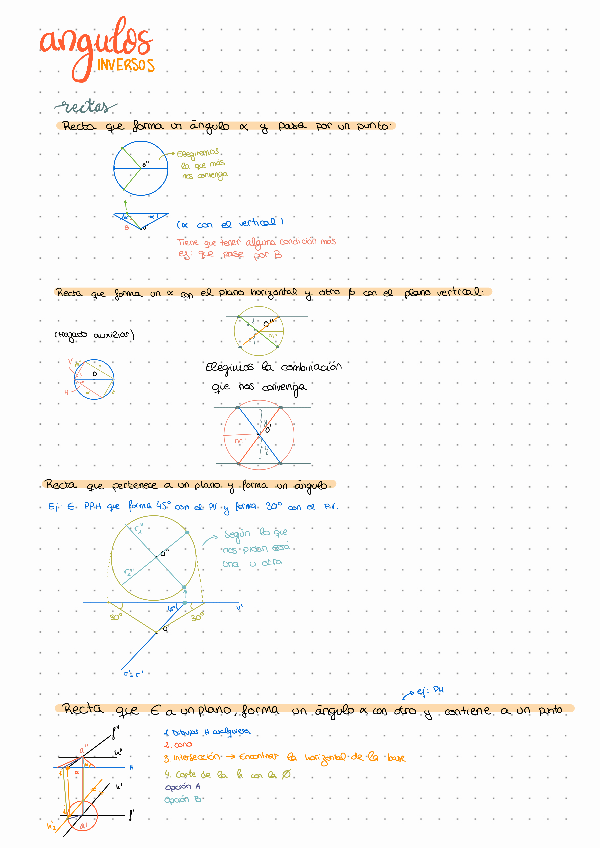 angulos
INVERSOS
rectas
Recta que forma un ángulo α y pasa por un punto.
Elegiríamos
la que más
nos convenga
o''
B
(α con el vertical)
Tiene que tener alguna condición más
ej: que pase por B
Recta que forma un α con el plano horizontal y otro β con el plano vertical.
(Hagado auxiliar)
O''
O
Elegimos la combinación
que nos convenga
O'
Recta que pertenece a un plano y forma un ángulo.
Ej: E. PPH que forma 45° con el PV y forma 30° con el PV.
Según lo que
nos pidan esa
una u otra
30°
45°
30°
Recta que E a un plano, forma un ángulo α con otro y contiene a un punto
ej: PH
1. Dibujas H cualquiera
2. cono
3. Intersección → Encontrar la horizontal de la base
4. Corte de la h con la Ø.
Opción A
Opción B.